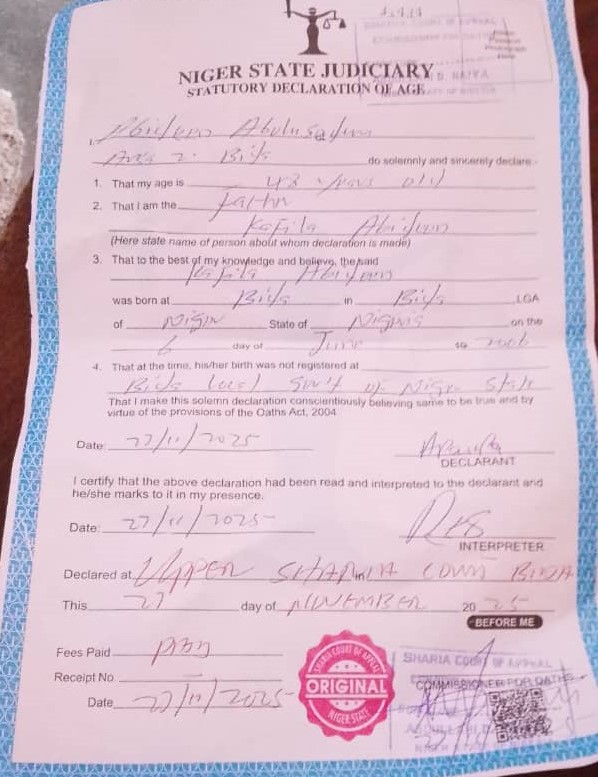 SHARIA COURT OF APPEAL
NIGER STATE JUDICIARY
STATUTORY DECLARATION OF AGE
Area 2. Bida do solemnly and sincerely declare:-
1. That my age is 48 years old
2. That I am the father
Kafila
(Here state name of person about whom declaration is made)
3. That to the best of my knowledge and believe, the said
Kafila
was born at Bida in Bida LGA
of Niger State of Nigeria on the
6 day of June 19 2006
4. That at the time, his/her birth was not registered at
Bida local Gov't of Niger State
That I make this solemn declaration conscientiously believing same to be true and by
virtue of the provisions of the Oaths Act, 2004
Date: 27/11/2025
DECLARANT
I certify that the above declaration had been read and interpreted to the declarant and
he/she marks to it in my presence.
Date: 27/11/2025
INTERPRETER
Declared at UPPER SHARIA COURT BIDA
This 27 day of NOVEMBER 20 25
BEFORE ME
Fees Paid
Receipt No.
Date 27/11/2025
SHARIA COURT OF APPEAL
ORIGINAL
NIGER STATE
SHARIA COURT OF APPEAL
COMMISSIONER FOR OATHS